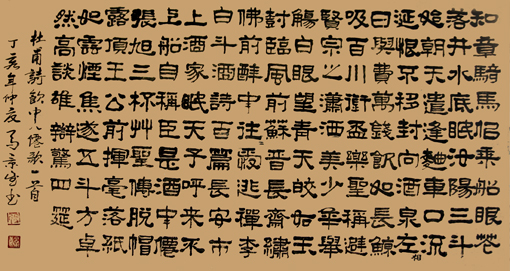 知章騎馬侣乘船眼花
落井水底眠汝陽三斗
始朝天道逢麴車口流
涎恨不移封向酒泉左相
日興費萬錢飲如長鯨
吸百川銜盃樂聖稱避
賢宗之瀟洒美少年舉
觴白眼望青天皎如玉
樹臨風前蘇晉長齋繡
佛前醉中往々愛逃禪李
白斗酒詩百篇長安市
上酒家眠天子呼來不
上船自稱臣是酒中僊
張旭三杯草聖傳脫帽
露頂王公前揮毫落紙
如雲煙焦遂五斗方卓
然高談雄辯驚四筵
杜甫詩飲中八僊歌一首
丁亥年仲夏